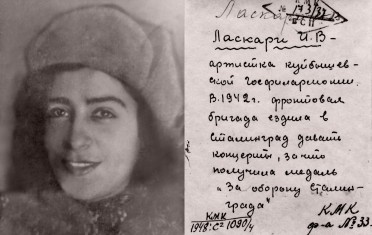 Ласкари
173/33
Ласкари И.В -
артистка куйбышев-
ской госфилармонии.
В 1942 г. фронтовая
бригада ездила в
Сталинград давать
концерты, за что
получила медаль
"За оборону Сталин-
града"
КМК
КМК
ф-а № 33.